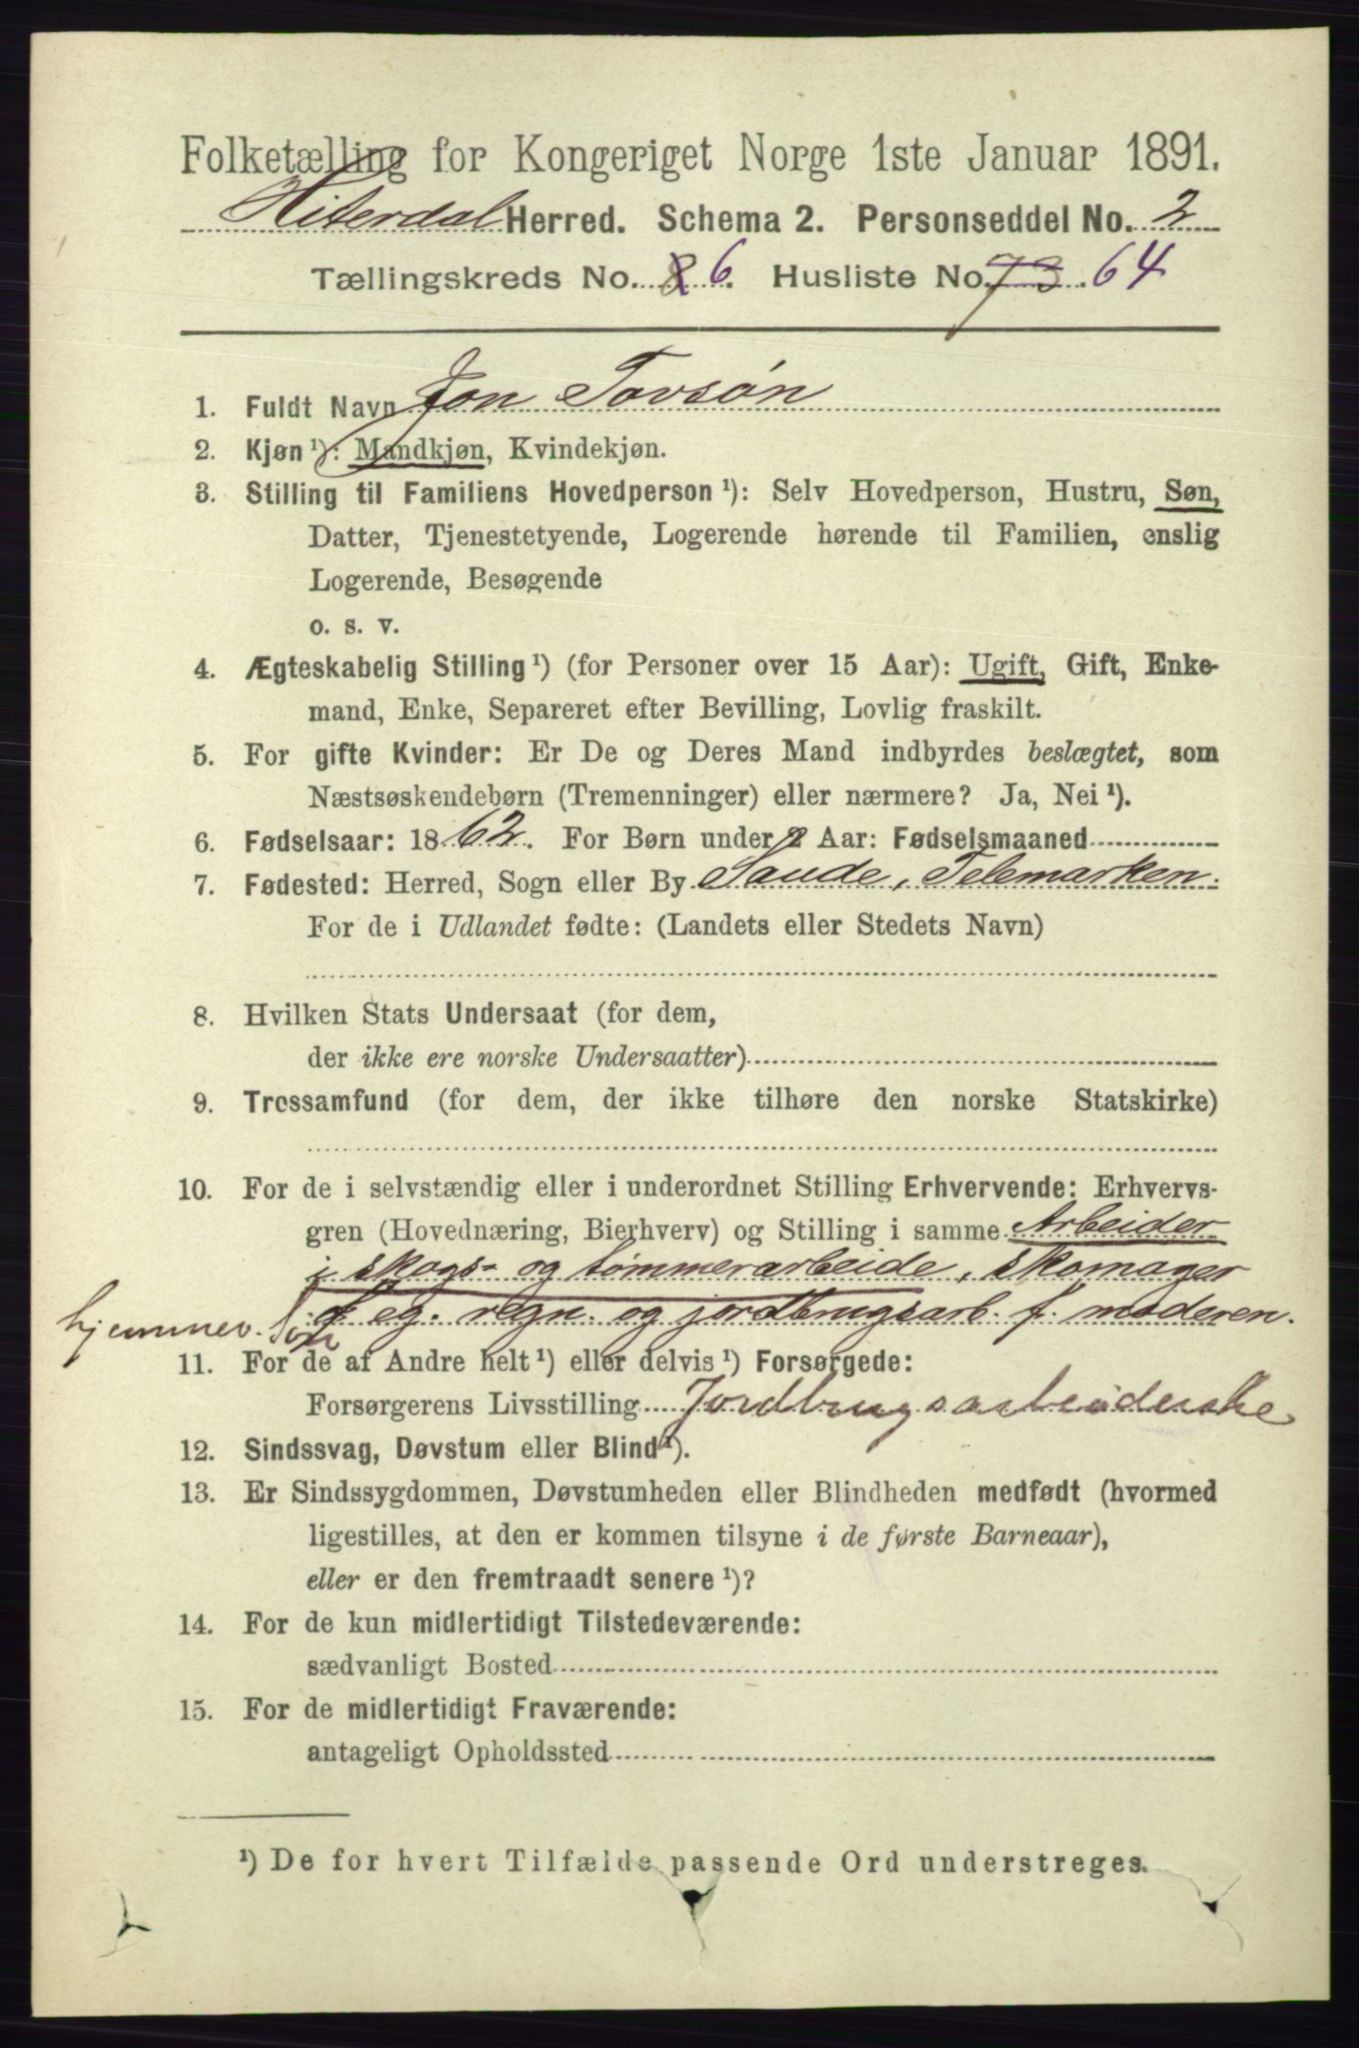 Folketælling for Kongeriget Norge 1ste Januar 1891.
Hiterdal Herred. Schema 2. Personseddel No. 2
Tællingskreds No. 8 6. Husliste No. 73 64
1. Fuldt Navn Jon Tovsøn
2. Kjøn¹): Mandkjøn, Kvindekjøn.
3. Stilling til Familiens Hovedperson¹): Selv Hovedperson, Hustru, Søn,
Datter, Tjenestetyende, Logerende hørende til Familien, enslig
Logerende, Besøgende
o. s. v.
4. Ægteskabelig Stilling¹) (for Personer over 15 Aar): Ugift, Gift, Enke-
mand, Enke, Separeret efter Bevilling, Lovlig fraskilt.
5. For gifte Kvinder: Er De og Deres Mand indbyrdes beslægtet, som
Næstsøskendebørn (Tremenninger) eller nærmere? Ja, Nei¹).
6. Fødselsaar: 1862. For Børn under 2 Aar: Fødselsmaaned
7. Fødested: Herred, Sogn eller By Saude, Telemarken.
For de i Udlandet fødte: (Landets eller Stedets Navn)
8. Hvilken Stats Undersaat (for dem,
der ikke ere norske Undersaatter)
9. Trossamfund (for dem, der ikke tilhøre den norske Statskirke)
10. For de i selvstændig eller i underordnet Stilling Erhvervende: Erhvervs-
gren (Hovednæring, Bierhverv) og Stilling i samme Arbeider
i skogs- og tømmerarbeide, skomager
f. eg. regn. og jordbrugsarb. f. moderen.
hjemmev. Søn
11. For de af Andre helt¹) eller delvis¹) Forsørgede:
Forsørgerens Livsstilling Jordbrugsarbeiderske
12. Sindssvag, Døvstum eller Blind¹).
13. Er Sindssygdommen, Døvstumheden eller Blindheden medfødt (hvormed
ligestilles, at den er kommen tilsyne i de første Barneaar),
eller er den fremtraadt senere¹)?
14. For de kun midlertidigt Tilstedeværende:
sædvanligt Bosted
15. For de midlertidigt Fraværende:
antageligt Opholdssted
¹) De for hvert Tilfælde passende Ord understreges.